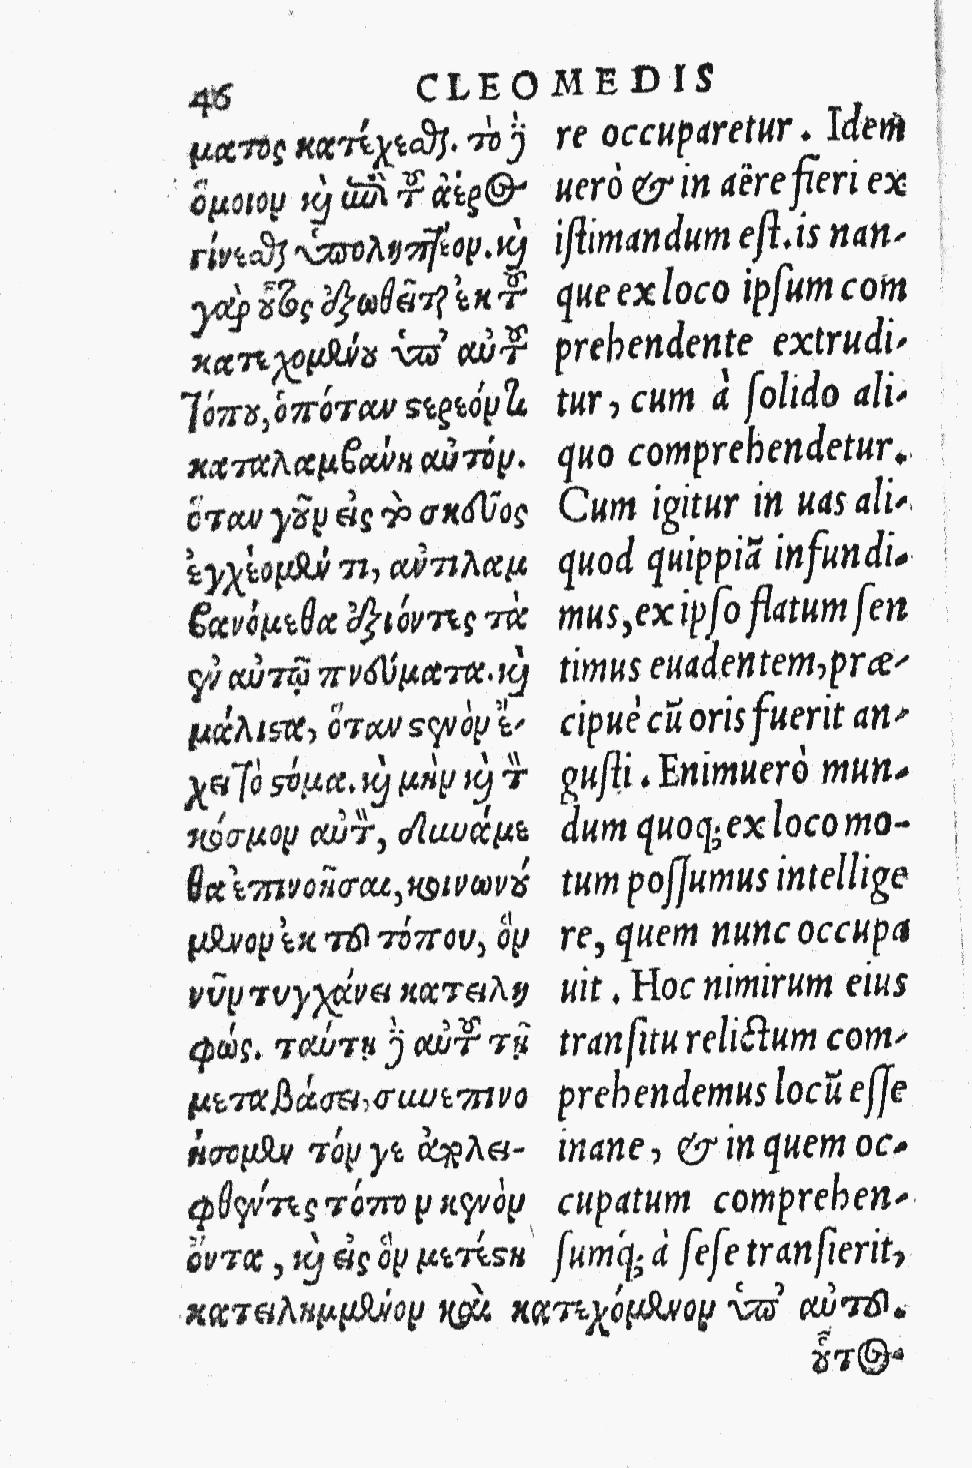 46 CLEOMEDIS
ματος κατέχεσθαι. τὸ δὲ
ὅμοιον καὶ ἐπὶ τοῦ ἀέρος
γίνεσθαι ὑποληπτέον. καὶ
γὰρ οὗτος ἐξωθεῖται ἐκ τοῦ
κατεχομένου ὑπ’ αὐτοῦ
τόπου, ὁπόταν στερεόν τι
καταλαμβάνη αὐτόν.
ὅταν γοῦν εἰς τὸ σκεῦος
ἐγχέομέν τι, ἀντιλαμ
βανόμεθα ἐξιόντες τὰ
ἐν αὐτῷ πνεύματα. καὶ
μάλιστα, ὅταν στενὸν ἔ-
χει τὸ στόμα. καὶ μὴν καὶ τὸν
κόσμον αὐτὸν, δυνάμε
θα ἐπινοῆσαι, κοινωνού
μενον ἐκ τοῦ τόπου, ὃν
νῦν τυγχάνει κατειλη
φώς. ταύτῃ δὲ αὐτοῦ τῇ
μεταβάσει, συνεπινο
ήσομεν τόν γε ἀπολει-
φθέντες τόπον κενὸν
ὄντα, καὶ εἰς ὃν μετέστη
re occuparetur. Idem
uerò & in aëre fieri ex
istimandum est. is nan-
que ex loco ipsum com
prehendente extrudi-
tur, cum à solido ali-
quo comprehendetur.
Cum igitur in uas ali-
quod quippiã infundi-
mus, ex ipso flatum sen
timus euadentem, præ-
cipuè cũ oris fuerit an-
gusti. Enimuerò mun-
dum quoq; ex loco mo-
tum possumus intellige
re, quem nunc occupa
uit. Hoc nimirum eius
transitu relictum com-
prehendemus locũ esse
inane, & in quem oc-
cupatum comprehen-
sumq́; à sese transierit,
κατειλημμένον καὶ κατεχόμενον ὑπ’ αὐτοῦ.
οὗτος